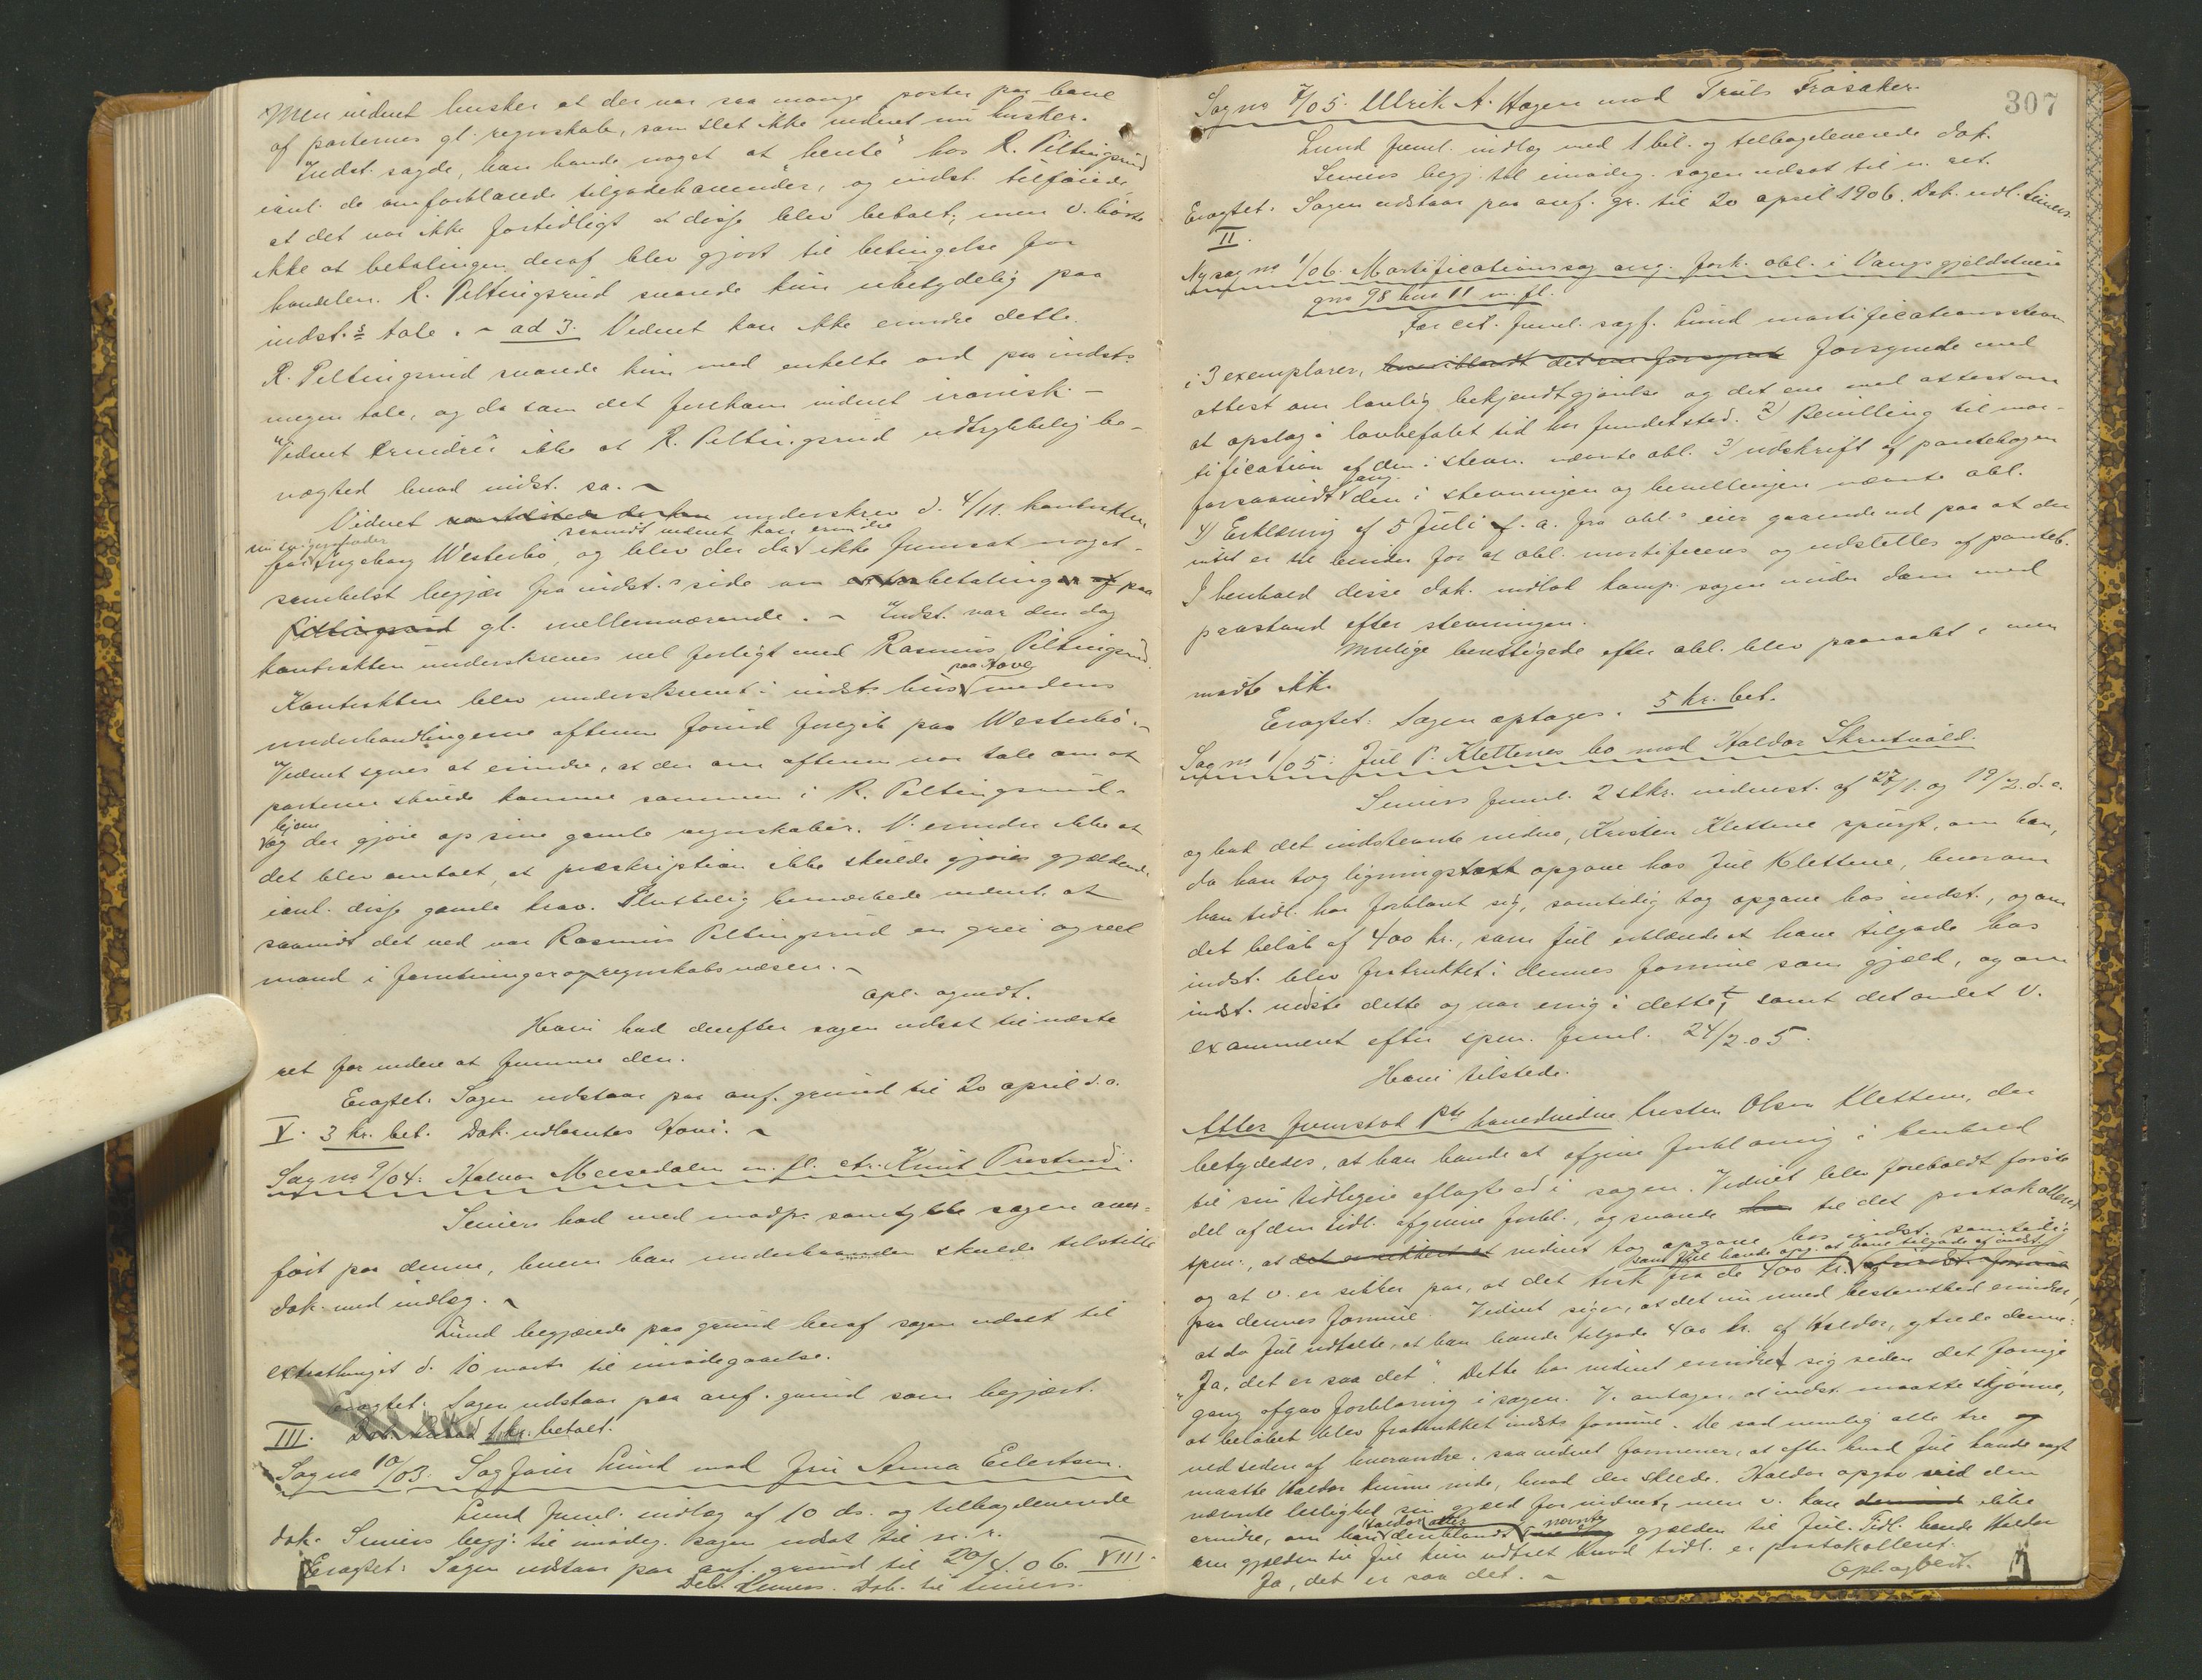 Men vidnet husker at der var saa mange poster paa bare
af parternes gl. regnskab, som slet ikke vidnet nu husker.
Indst. sagde, han havde noget at "hente" hos R. Piltingsrud
ianl. de omforklarede tilgodehavender, og indst. tilføiede
at det var ikke fortidligt at disse blev betalt; men v. hørte
ikke at betalingen deraf blev gjort til betingelse for
handelen. R. Piltingsrud svarede kun ubetydelig paa
indst.s tale. - ad 3. Vidnet kan ikke erindre dette.
R. Piltingsrud svarede kun med enkelte ord paa indst.s
megen tale, og da som det forekom vidnet ironisk. -
Vidnet erindrer ikke at R. Piltingsrud udtrykkelig be-
nægted hvad indst. sa. -
Vidnet underskrev d. 4/11. kontrakten
saavidt vidnet kan erindre
for Ingeborg Westerbø, og blev der da ikke fremsat noget
somhelst begjær fra indst.s side om betaling af paa
Piltingsrud gl. mellemværende. - Indst. var den dag
kontrakten underskreves vel forligt med Rasmus Piltingsrud.
paa Hove
Kontrakten blev underskrevet i indst.s hus medens
underhandlingerne aftenen forud foregik paa Westerbø. -
Vidnet synes at erindre, at der om aftenen var tale om at
parterne skulde komme sammen i R. Piltingsrud-
hjem
og der gjøre op sine gamle regnskaber. V. erindrer ikke at
det blev omtalt, at præskription ikke skulde gjøres gjældende
ianl. disse gamle krav. Sluttelig bemærkede vidnet, at
saavidt det ved var Rasmus Piltingsrud en grei og reel
mand i forretninger og regnskabsvæsen. -
Opl. og vedt.
Hovi bad derefter sagen udsat til næste
ret for videre at fremme den.
Eragtet: Sagen udstaar paa anf. grund til 20 april d.a.
V. 3 kr. bet. Dok. udlaantes Hovi. -
Sag no 9/04: Halvor Meesedalen m. fl. ctr. Knut Prestrud.
Simers bad med modp. samtykke sagen over-
ført paa denne, hvem han underhaanden skulde tilstille
dok. med indlæg. -
Lund begjærede paa grund heraf sagen udsat til
extrathinget d. 10 marts til imødegaaelse.
Eragtet: Sagen udstaar paa anf. grund som begjært.
III. Dok. 1 kr. betalt.
Sag no 10/03: Sagfører Lund mod fru Anna Eilertsen.
Lund freml. indlæg af 10 ds. og tilbageleverede
dok. Simers begj. til imødeg. sagen udsat til n. r.
Eragtet: Sagen udstaar paa anf. grund til 20/4.06. VIII.
Deb. Simers. Dok. til Simers.
307
Sag no 7/05. Ulrik A. Hagen mod Truls Frøsaker.
Lund freml. indlæg med 1 bil. og tilbageleverede dok.
Simers begj. til imødeg. sagen udsat til n. ret.
Eragtet: Sagen udstaar paa anf. gr. til 20 april 1906. Dok. udl. Simers.
II.
Ny sag no 1/06. Mortificationssag ang. fork. obl. i Vangs gjeldstuen
gno 98 bno 11 m. fl.
For cit. freml. sagf. Lund mortificationsstevn.
i 3 exemplarer, hvoriblandt det ene forsynet forsynede med
attest om lovlig bekjendtgjørelse og det ene med attest om
at opslag i lovbefalet tid har fundet sted. 2) Bevilling til mor-
tification af den i stevn. nævnte obl. 3) udskrift af pantebogen
ang.
forsaavidt den i stevningen og bevillingen nævnte obl.
4) Erklæring af 5 Juli f. a. fra obl.s eier gaaende ud paa at der
intet er til hinder for at obl. mortificeres og udslettes af panteb.
I henhold disse dok. indlod komp. sagen under dom med
paastand efter stevningen.
Mulige berettigede efter obl. blev paaraabt, men
mødte ikke.
Eragtet: Sagen optages. 5 kr. bet.
Sag no 1/05: Jul P. Klettenes bo mod Haldor Skrutvold.
Simers freml. 2 stkr. vidnest. af 27/1. og 19/2. d. a.
og bad det indstevnte vidne, Kristen Klettene spurgt, om han,
da han tog ligningsopgave hos Jul Klettene, hvorom
han tidl. har forklaret sig, samtidig tog opgave hos indst., og om
det beløb af 400 kr., som Jul erklærede at have tilgode hos
indst. blev fratrukket i dennes formue som gjæld, og om
indst. vidste dette og var enig i dette, samt det andet v.
examineret efter spm. freml. 24/2.05.
Hovi tilstede.
Atter fremstod 1ste hovedvidne Kristen Olsen Klettene, der
betydedes, at han havde at afgive forklaring i henhold
til sin tidligere aflagte ed i sagen. Vidnet blev foreholdt første
del af den tidl. afgivne forkl., og svarede til det protokollerede
spm., at det er sikkert at vidnet tog opgave hos indst. samtidig
som Jul havde opg. at have tilgode af indst.
og at v. er sikker paa, at det trak fra de 400 kr.
paa dennes formue. Vidnet siger, at det nu med bestemthed erindrer,
at da Jul udtalte, at han havde tilgode 400 kr. af Haldor, ytrede denne:
"Ja, det er saa det". Dette har vidnet erindret sig siden det forrige
gang afgav forklaring i sagen. V. antager, at indst. maatte skjønne,
at beløbet blev fratrukket indsts formue. De sad nemlig alle tre
ved siden af hverandre, saa vidnet formener, at efter hvad Jul havde sagt
maatte Haldor kunne vide, hvad der skede. Haldor opgav ved den
nævnte leilighed sin gjæld for vidnet, men v. kan ikke
Haldor nævnte
erindre, om han deriblandt gjælden til Jul. Tidl. havde Haldor
om gjælden til Jul kun udtalt hvad tidl. er protokolleret:
Ja, det er saa det. - Opl. og vedt.